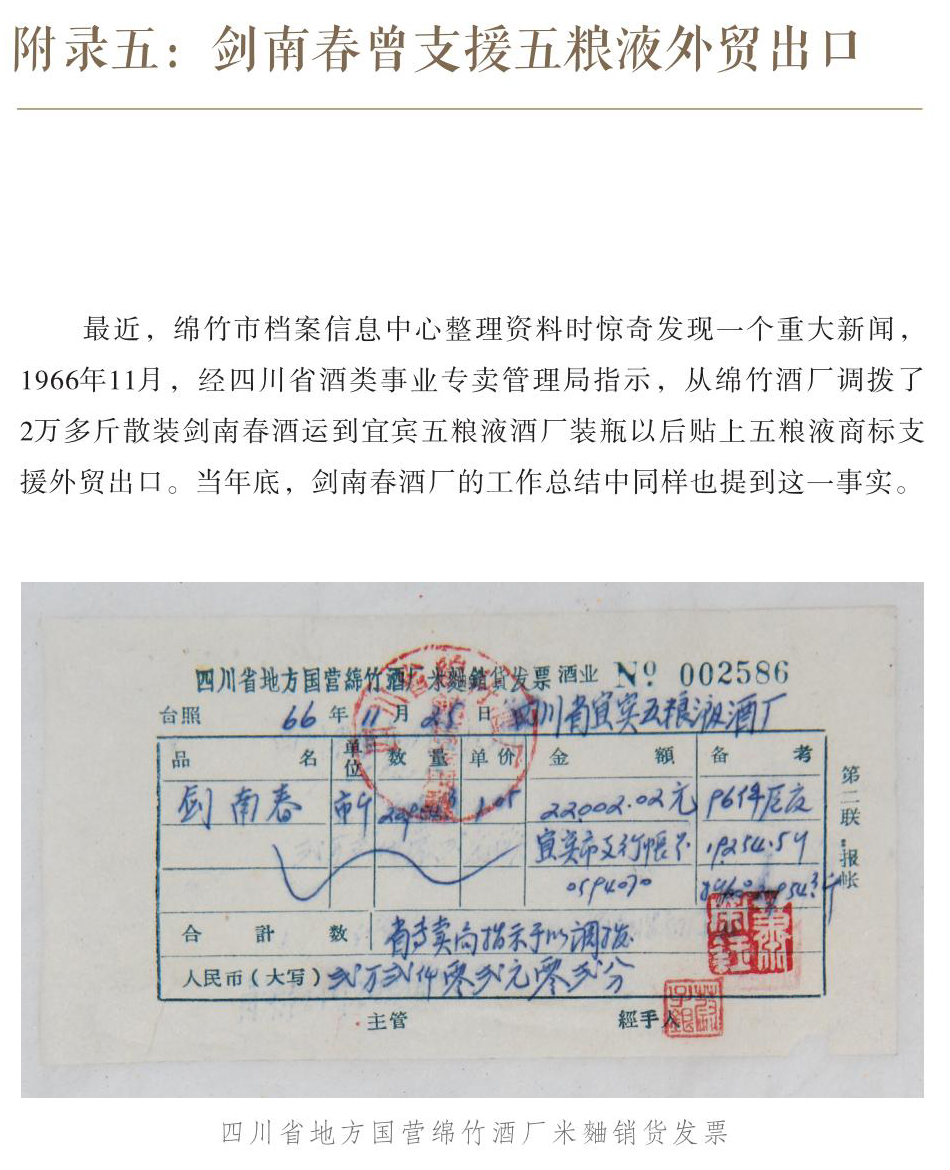 附录五：剑南春曾支援五粮液外贸出口
最近，绵竹市档案信息中心整理资料时惊奇发现一个重大新闻，
1966年11月，经四川省酒类事业专卖管理局指示，从绵竹酒厂调拨了
2万多斤散装剑南春酒运到宜宾五粮液酒厂装瓶以后贴上五粮液商标支
援外贸出口。当年底，剑南春酒厂的工作总结中同样也提到这一事实。
四川省地方国营綿竹酒厂米麯銷货发票 酒业 Nº 002586
台照 66年11月25日 四川省宜宾五粮液酒厂
品名 单位 数量 单价 金額 备考
剑南春 市斤 1.05 22002.02元
宜宾市支行帐户 19254.59
0594070
合計数 省专卖局指示予以调拨
人民币（大写）弍万弍仟零弍元零弍分
主管 經手人
第二联：报帐
四川省地方国营绵竹酒厂米麯销货发票